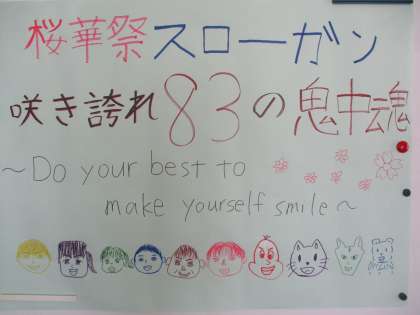 桜華祭スローガン
咲き誇れ83の鬼中魂
~Do your best to
make yourself smile~